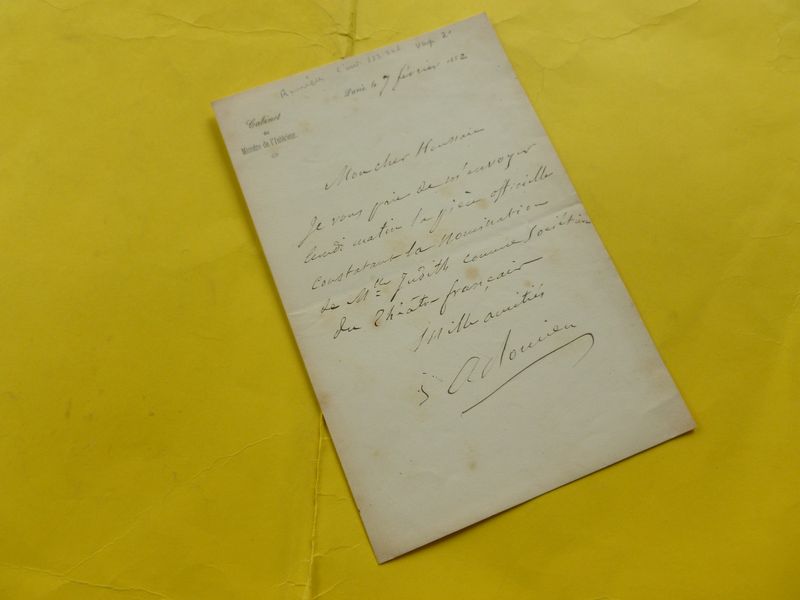 Paris le 7 février 1852
Cabinet
du
Ministre de l'Intérieur.
Mon cher Houssaie
Je vous prie de m'envoyer
lundi matin la pièce officielle
constatant la nomination
de Mlle Judith comme Sociétaire
du Théâtre français
Mille amitiés